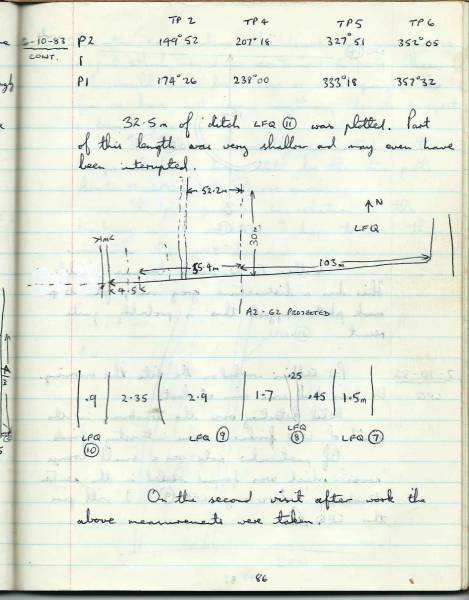 TP 2 TP 4 TP 5 TP 6
-10-83 P2 149°52 207°18 327°51 352°05
CONT. 1
P1 174°26 238°00 333°18 357°32
32.5m of ditch LFQ 11 was plotted. Part
of this length was very shallow and may even have
been interrupted.
52.2m
N
LFQ
30m
1m
4.5
55.4m
103m
A2-G2 PROJECTED
.9 2.35 2.9 1.7 .25 .45 1.5m
LFQ 10 LFQ 9 LFQ 8 LFQ 7
On the second visit after work the
above measurements were taken.
86